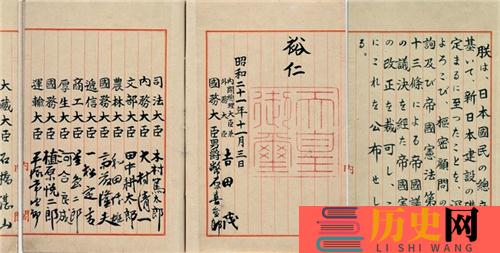 朕は、日本国民の総
基いて、新日本建設の礎
定まるに至つたことを、深
よろこび、枢密顧問の
詢及び帝國憲法第
十三條による帝國
の議決を経た帝國
の改正を裁可し、こ
にこれを公布せし
る。
裕仁
天皇御璽
昭和二十一年十一月三日
内閣總理大臣兼
外務大臣 吉田茂
國務大臣 男爵幣原喜重郎
司法大臣 木村篤太郎
内務大臣 大村清一
文部大臣 田中耕太郎
農林大臣 和田博雄
國務大臣 斎藤隆夫
逓信大臣 一松定吉
商工大臣 星島二郎
厚生大臣 河合良成
國務大臣 植原悦二郎
運輸大臣 平塚常次郎
大藏大臣 石橋湛山
内閣
历史网
LI SHI WANG